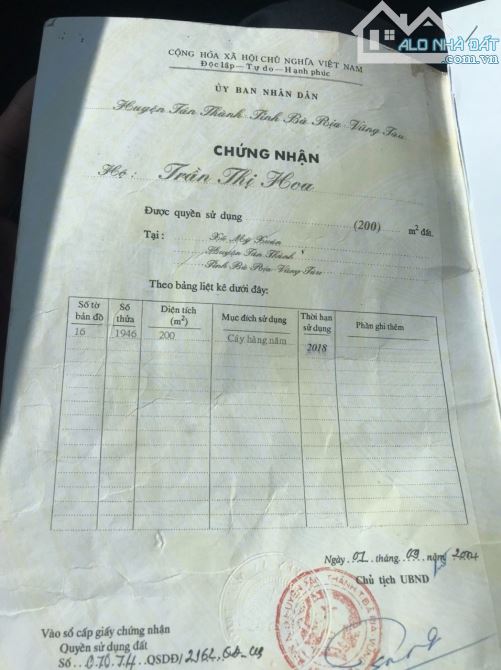 ALO NHÀ ĐẤT
CỘNG HÒA XÃ HỘI CHỦ NGHĨA VIỆT NAM
Độc lập — Tự do — Hạnh phúc
ỦY BAN NHÂN DÂN
Huyện Tân Thành Tỉnh Bà Rịa-Vũng Tàu
CHỨNG NHẬN
Hộ: Trần Thị Hoa
Được quyền sử dụng (200) m² đất.
Tại : Xã Mỹ Xuân
Huyện Tân Thành
Tỉnh Bà Rịa Vũng Tàu
Theo bảng liệt kê dưới đây:
Số tờ bản đồ Số thửa Diện tích (m²) Mục đích sử dụng Thời hạn sử dụng Phần ghi thêm
16 1946 200 Cây hàng năm 2018
Ngày 01 tháng 09 năm 2004
Chủ tịch UBND
Vào sổ cấp giấy chứng nhận
Quyền sử dụng đất
Số 07074 QSDĐ/